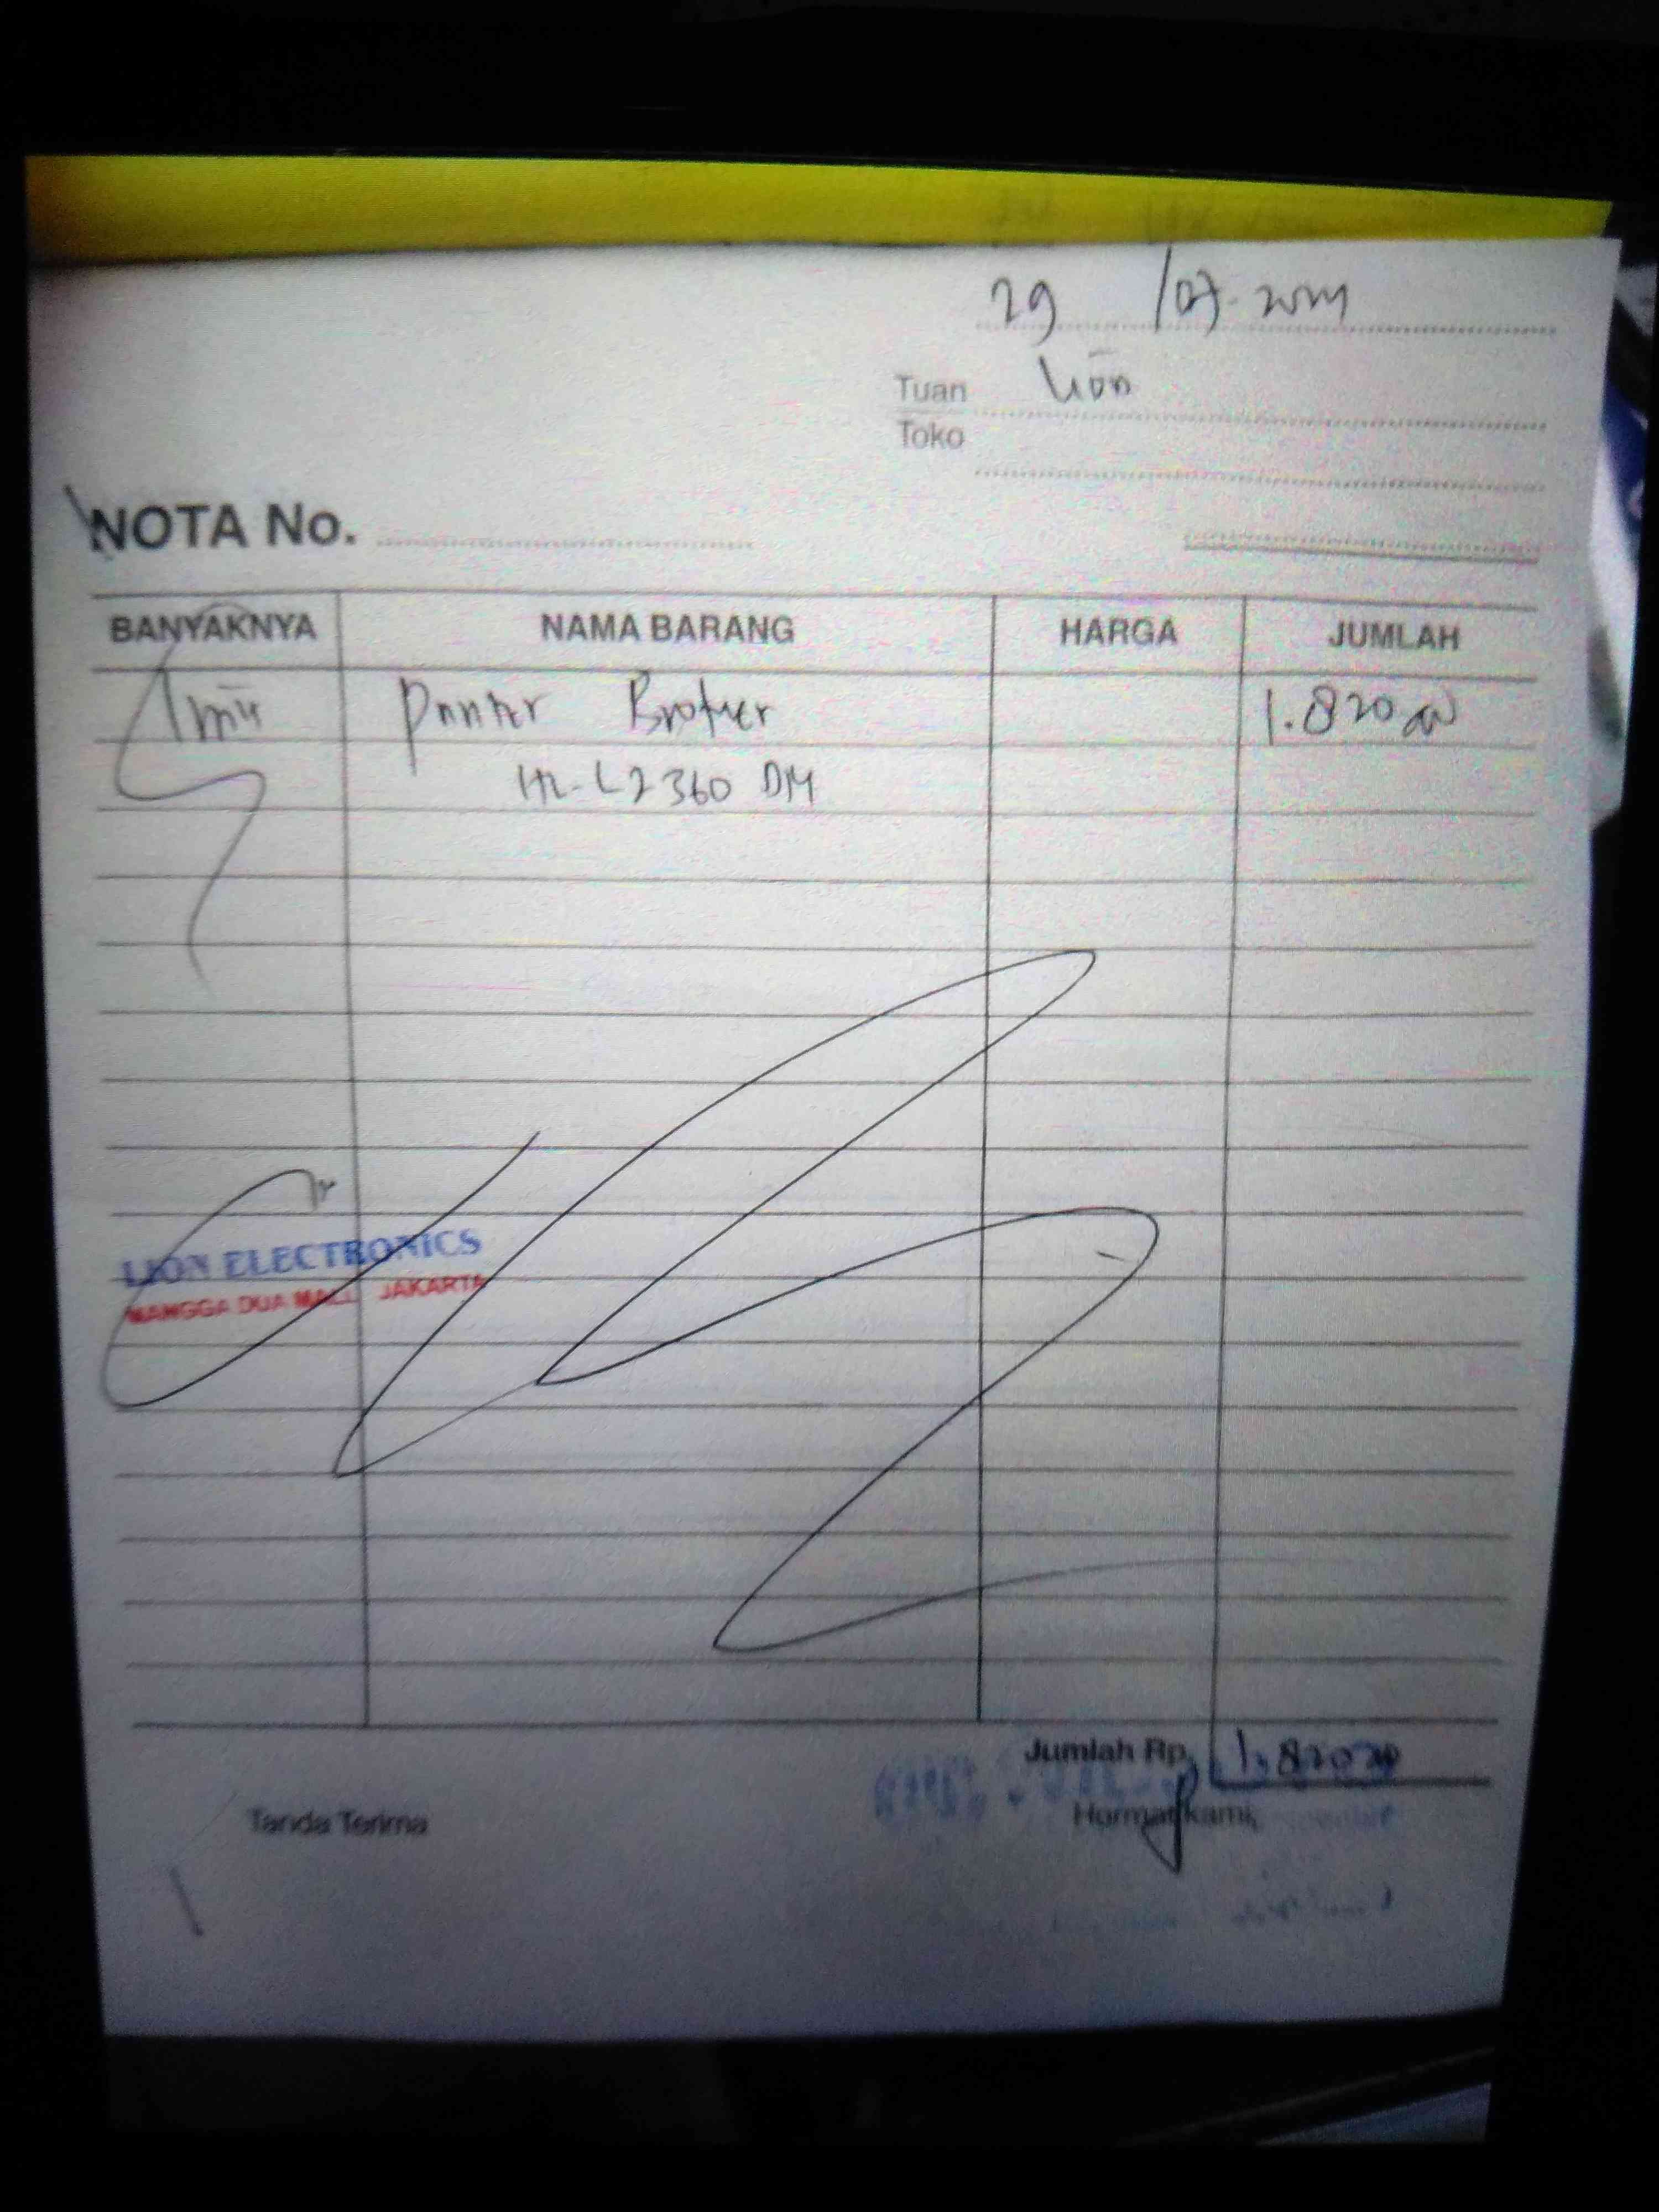 29 /07-
Tuan Lion
Toko
NOTA No.
BANYAKNYA NAMA BARANG HARGA JUMLAH
1 Printer Brother 1.820
HL-L2360 DN
LION ELECTRONICS
MANGGA DUA MALL JAKARTA
Jumlah Rp. 1.820
Tanda Terima Hormat kami,